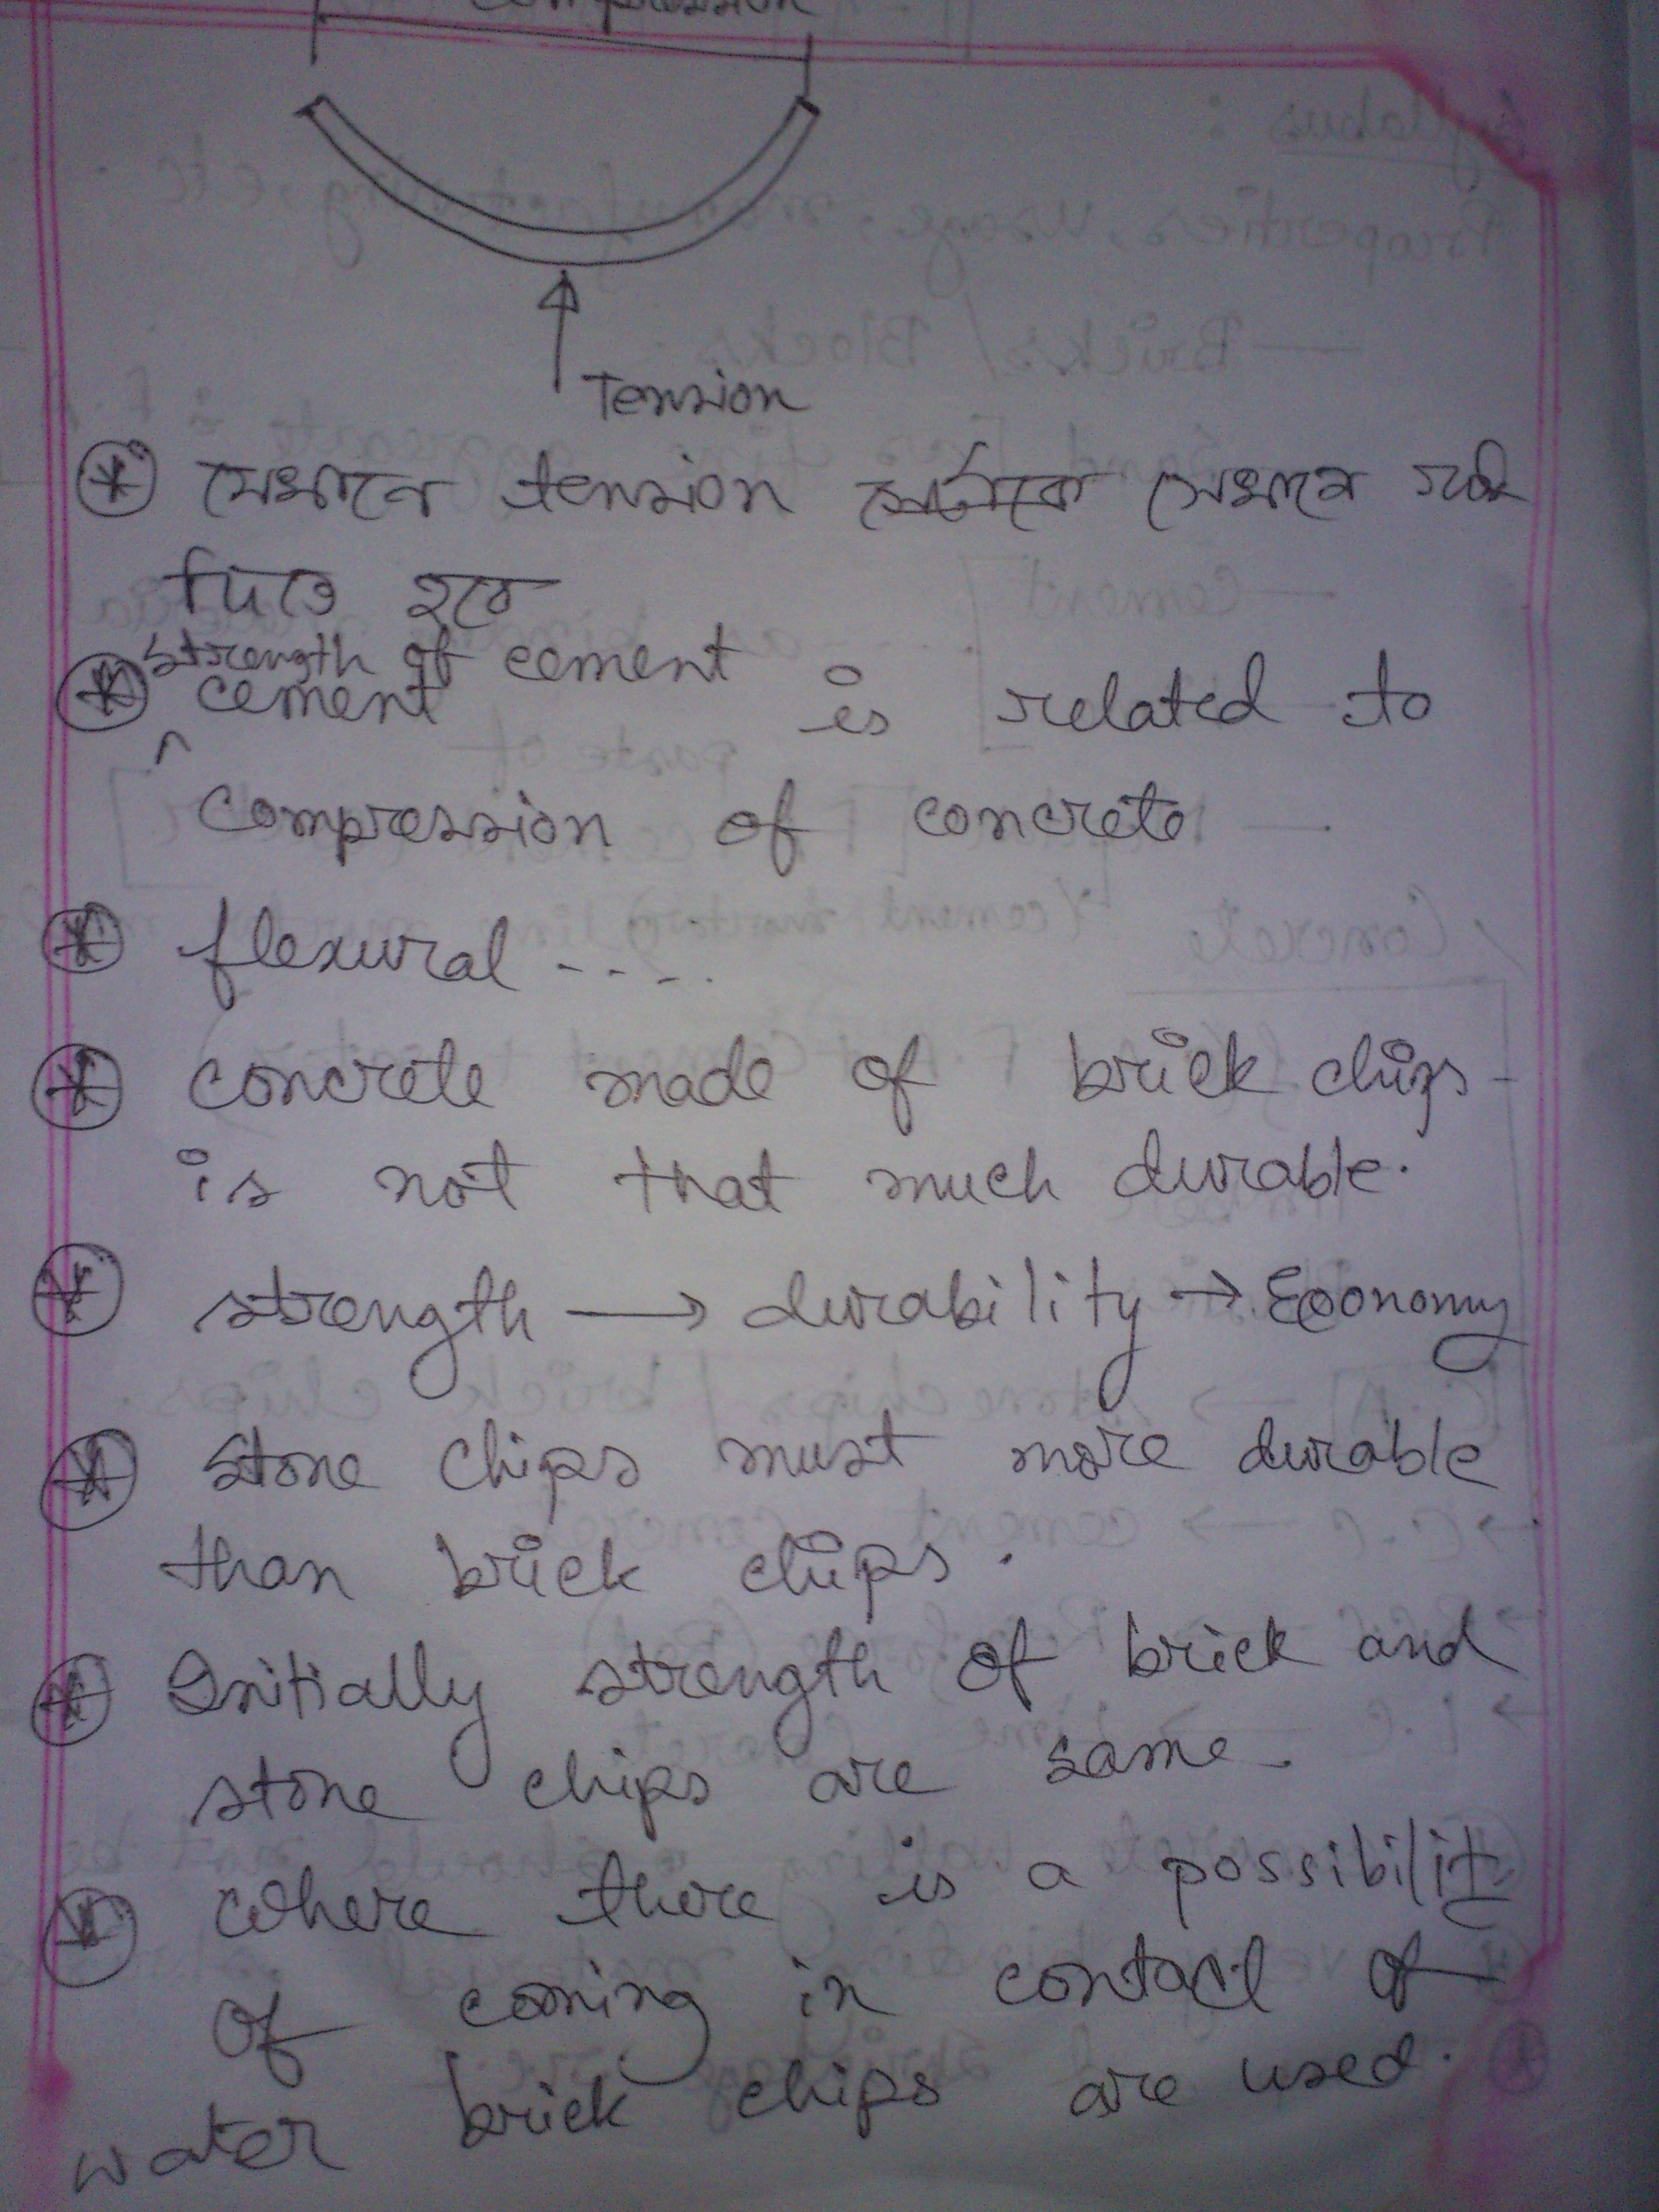 Compression
Tension
যেখানে tension সেখানে রড
দিতে হবে
strength of cement
cement is related to
compression of concrete
flexural - - - .
concrete made of brick chips
is not that much durable.
strength → durability → Economy
stone chips must more durable
than brick chips.
Initially strength of brick and
stone chips are same.
where there is a possibility
of coming in contact of
water brick chips are used.